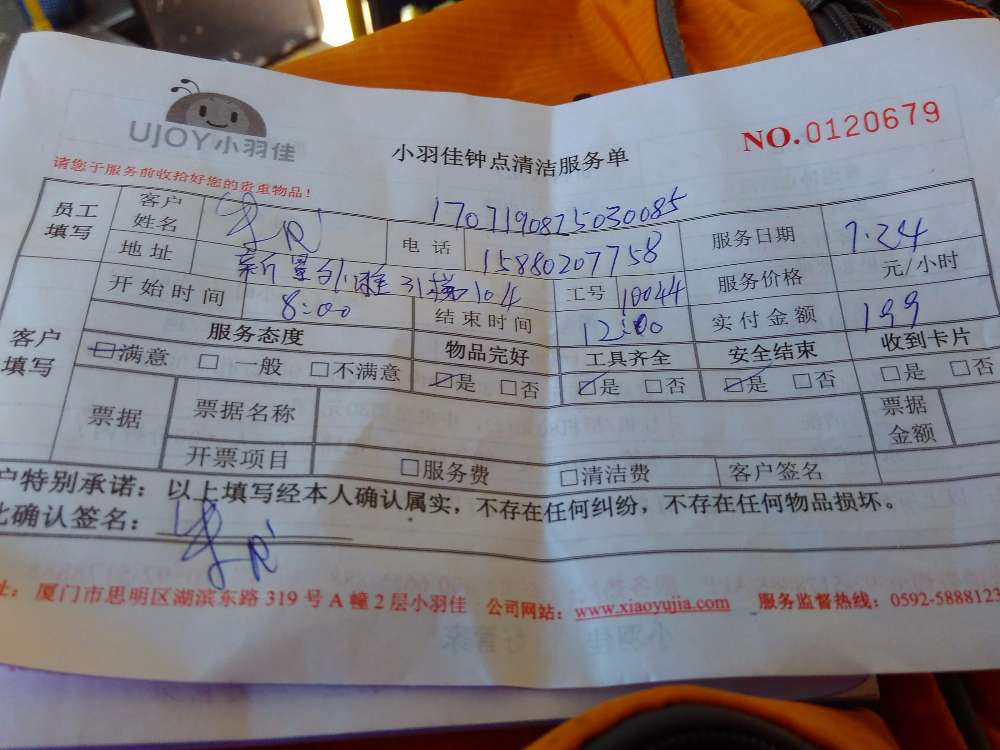 UJOY小羽佳
小羽佳钟点清洁服务单
NO.0120679
请您于服务前收拾好您的贵重物品！
1707190825030085
员工填写 客户姓名 电话 15880207758 服务日期 7.24
地址 31楼104 工号 10044 服务价格 元/小时
客户填写 开始时间 8:00 结束时间 12:00 实付金额 199
服务态度 物品完好 工具齐全 安全结束 收到卡片
□满意 □一般 □不满意 □是 □否 □是 □否 □是 □否 □是 □否
票据 票据名称 票据金额
开票项目 □服务费 □清洁费 客户签名
户特别承诺：以上填写经本人确认属实，不存在任何纠纷，不存在任何物品损坏。
此确认签名：
址：厦门市思明区湖滨东路 319 号 A 幢 2 层小羽佳 公司网站：www.xiaoyujia.com 服务监督热线：0592-5888123